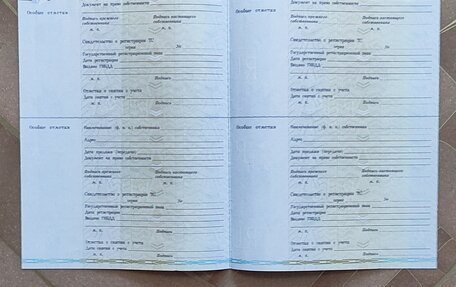 Документ на право собственности
Особые отметки
Подпись прежнего собственника
Подпись настоящего собственника
М. П.
М. П.
Свидетельство о регистрации ТС
серия №
Государственный регистрационный знак
Дата регистрации
Выдано ГИБДД
М. П.
Подпись
Отметка о снятии с учета
Дата снятия с учета
М. П.
Подпись
Документ на право собственности
Особые отметки
Подпись прежнего собственника
Подпись настоящего собственника
М. П.
М. П.
Свидетельство о регистрации ТС
серия №
Государственный регистрационный знак
Дата регистрации
Выдано ГИБДД
М. П.
Подпись
Отметка о снятии с учета
Дата снятия с учета
М. П.
Подпись
Особые отметки
Наименование (ф. и. о.) собственника
Адрес
Дата продажи (передачи)
Документ на право собственности
Подпись прежнего собственника
Подпись настоящего собственника
М. П.
М. П.
Свидетельство о регистрации ТС
серия №
Государственный регистрационный знак
Дата регистрации
Выдано ГИБДД
М. П.
Подпись
Отметка о снятии с учета
Дата снятия с учета
М. П.
Подпись
Особые отметки
Наименование (ф. и. о.) собственника
Адрес
Дата продажи (передачи)
Документ на право собственности
Подпись прежнего собственника
Подпись настоящего собственника
М. П.
М. П.
Свидетельство о регистрации ТС
серия №
Государственный регистрационный знак
Дата регистрации
Выдано ГИБДД
М. П.
Подпись
Отметка о снятии с учета
Дата снятия с учета
М. П.
Подпись